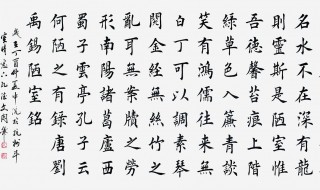 名水不在深有龍
則靈斯是陋室惟
吾德馨苔痕上階
緑草色入簾青談
笑有鴻儒往来無
白丁可以調素琴
閲金經無絲竹之
亂耳無案牘之勞
形南陽諸葛廬西
蜀子雲亭孔子云
何陋之有録唐劉
禹錫陋室銘